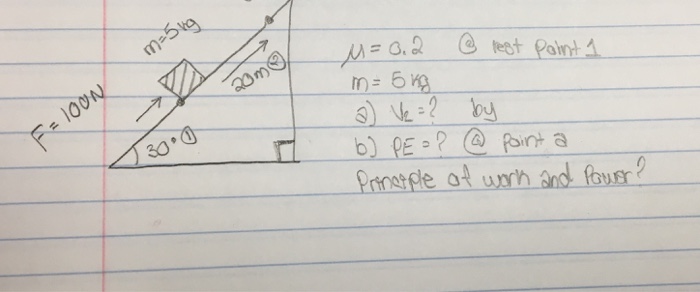 m=5kg
20m ②
F=100N
30° ①
μ=0.2 @ rest point 1
m=5kg
a) V₂=? by
b) PE=? @ point 2
Principle of work and Power?